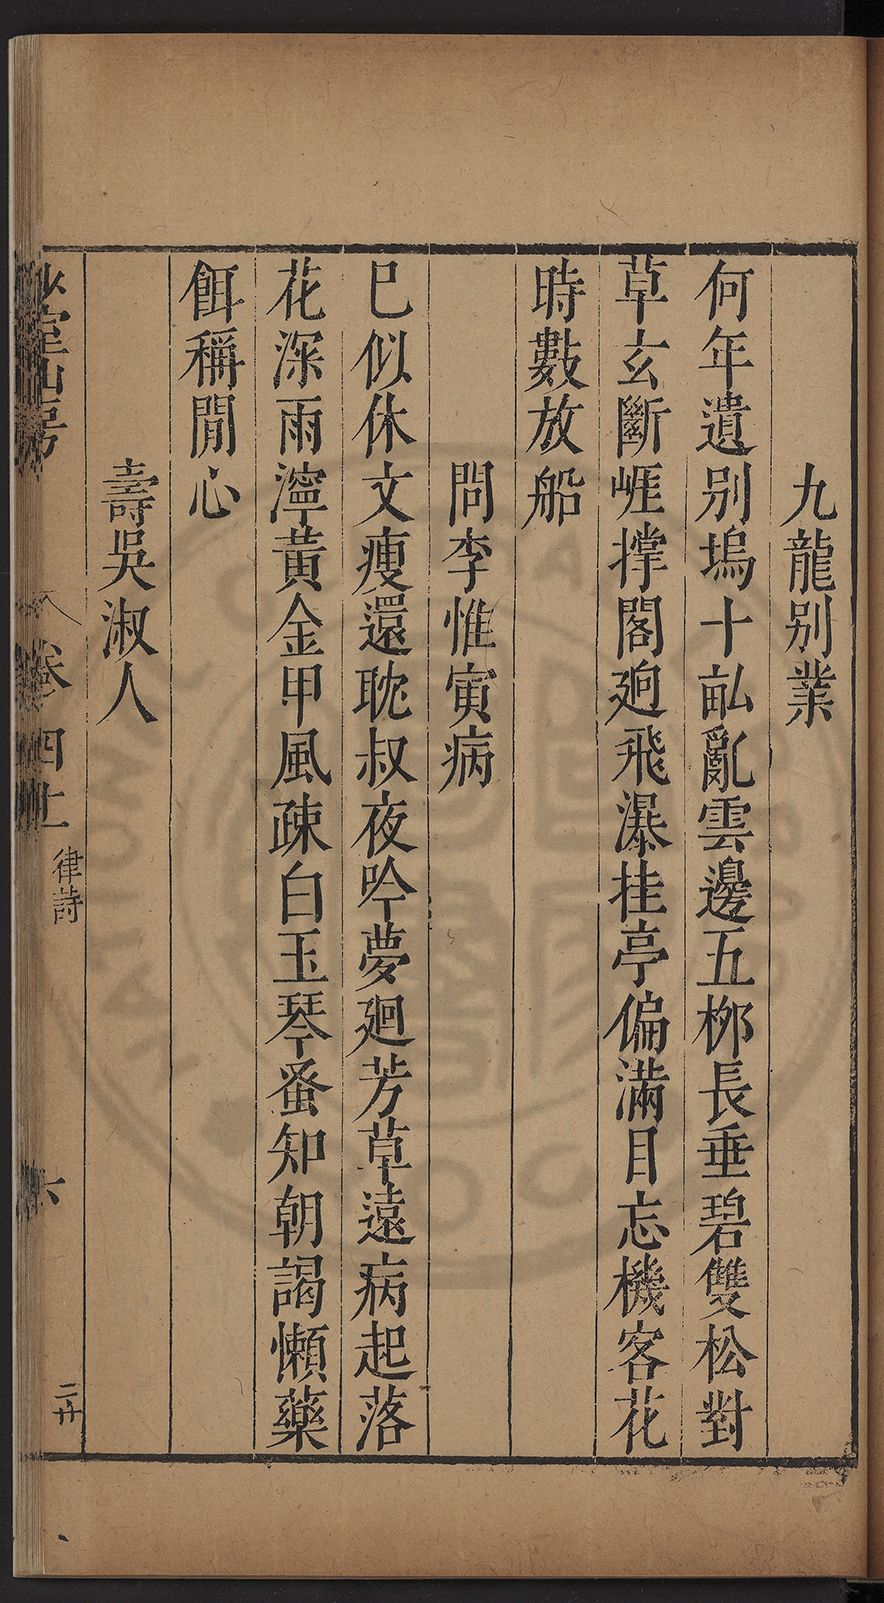 九龍别業
何年遺别塢十畝亂雲邊五栁長垂碧雙松對
草玄斷崕撑閣逈飛瀑挂亭偏滿目忘機客花
時數放船
問李惟寅病
已似休文瘦還耽叔夜吟夢廻芳草遠病起落
花深雨濘黃金甲風疎白玉琴蚤知朝謁懶藥
餌稱閒心
壽吳淑人
卷四上
律詩
六
二廿